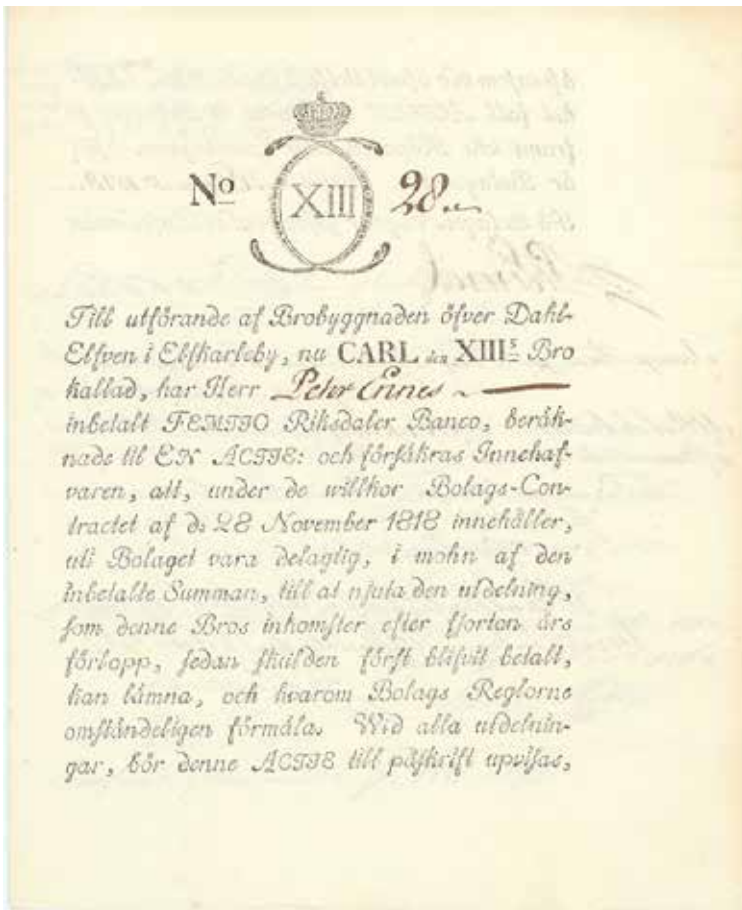 No XIII 28
Till utförande af Brobyggnaden öfver Dahl-
Elfven i Elfkarleby, nu CARL den XIII:s Bro
kallad, har Herr Pehr Ennes
inbetalt FEMTIO Riksdaler Banco, beräk-
nade til EN ACTIE: och försäkras Innehaf-
varen, att, under de willkor Bolags-Con-
tractet af d: 28 November 1818 innehåller,
uti Bolaget vara delagtig, i mohn af den
inbetalte Summan, till at njuta den utdelning,
som denne Bros inkomster efter fjorton års
förlopp, sedan skulden först blifvit betalt,
kan lämna, och hvarom Bolags Reglorne
omständeligen förmäla. Wid alla utdelnin-
gar, bör denne ACTIE till påskrift upvisas,